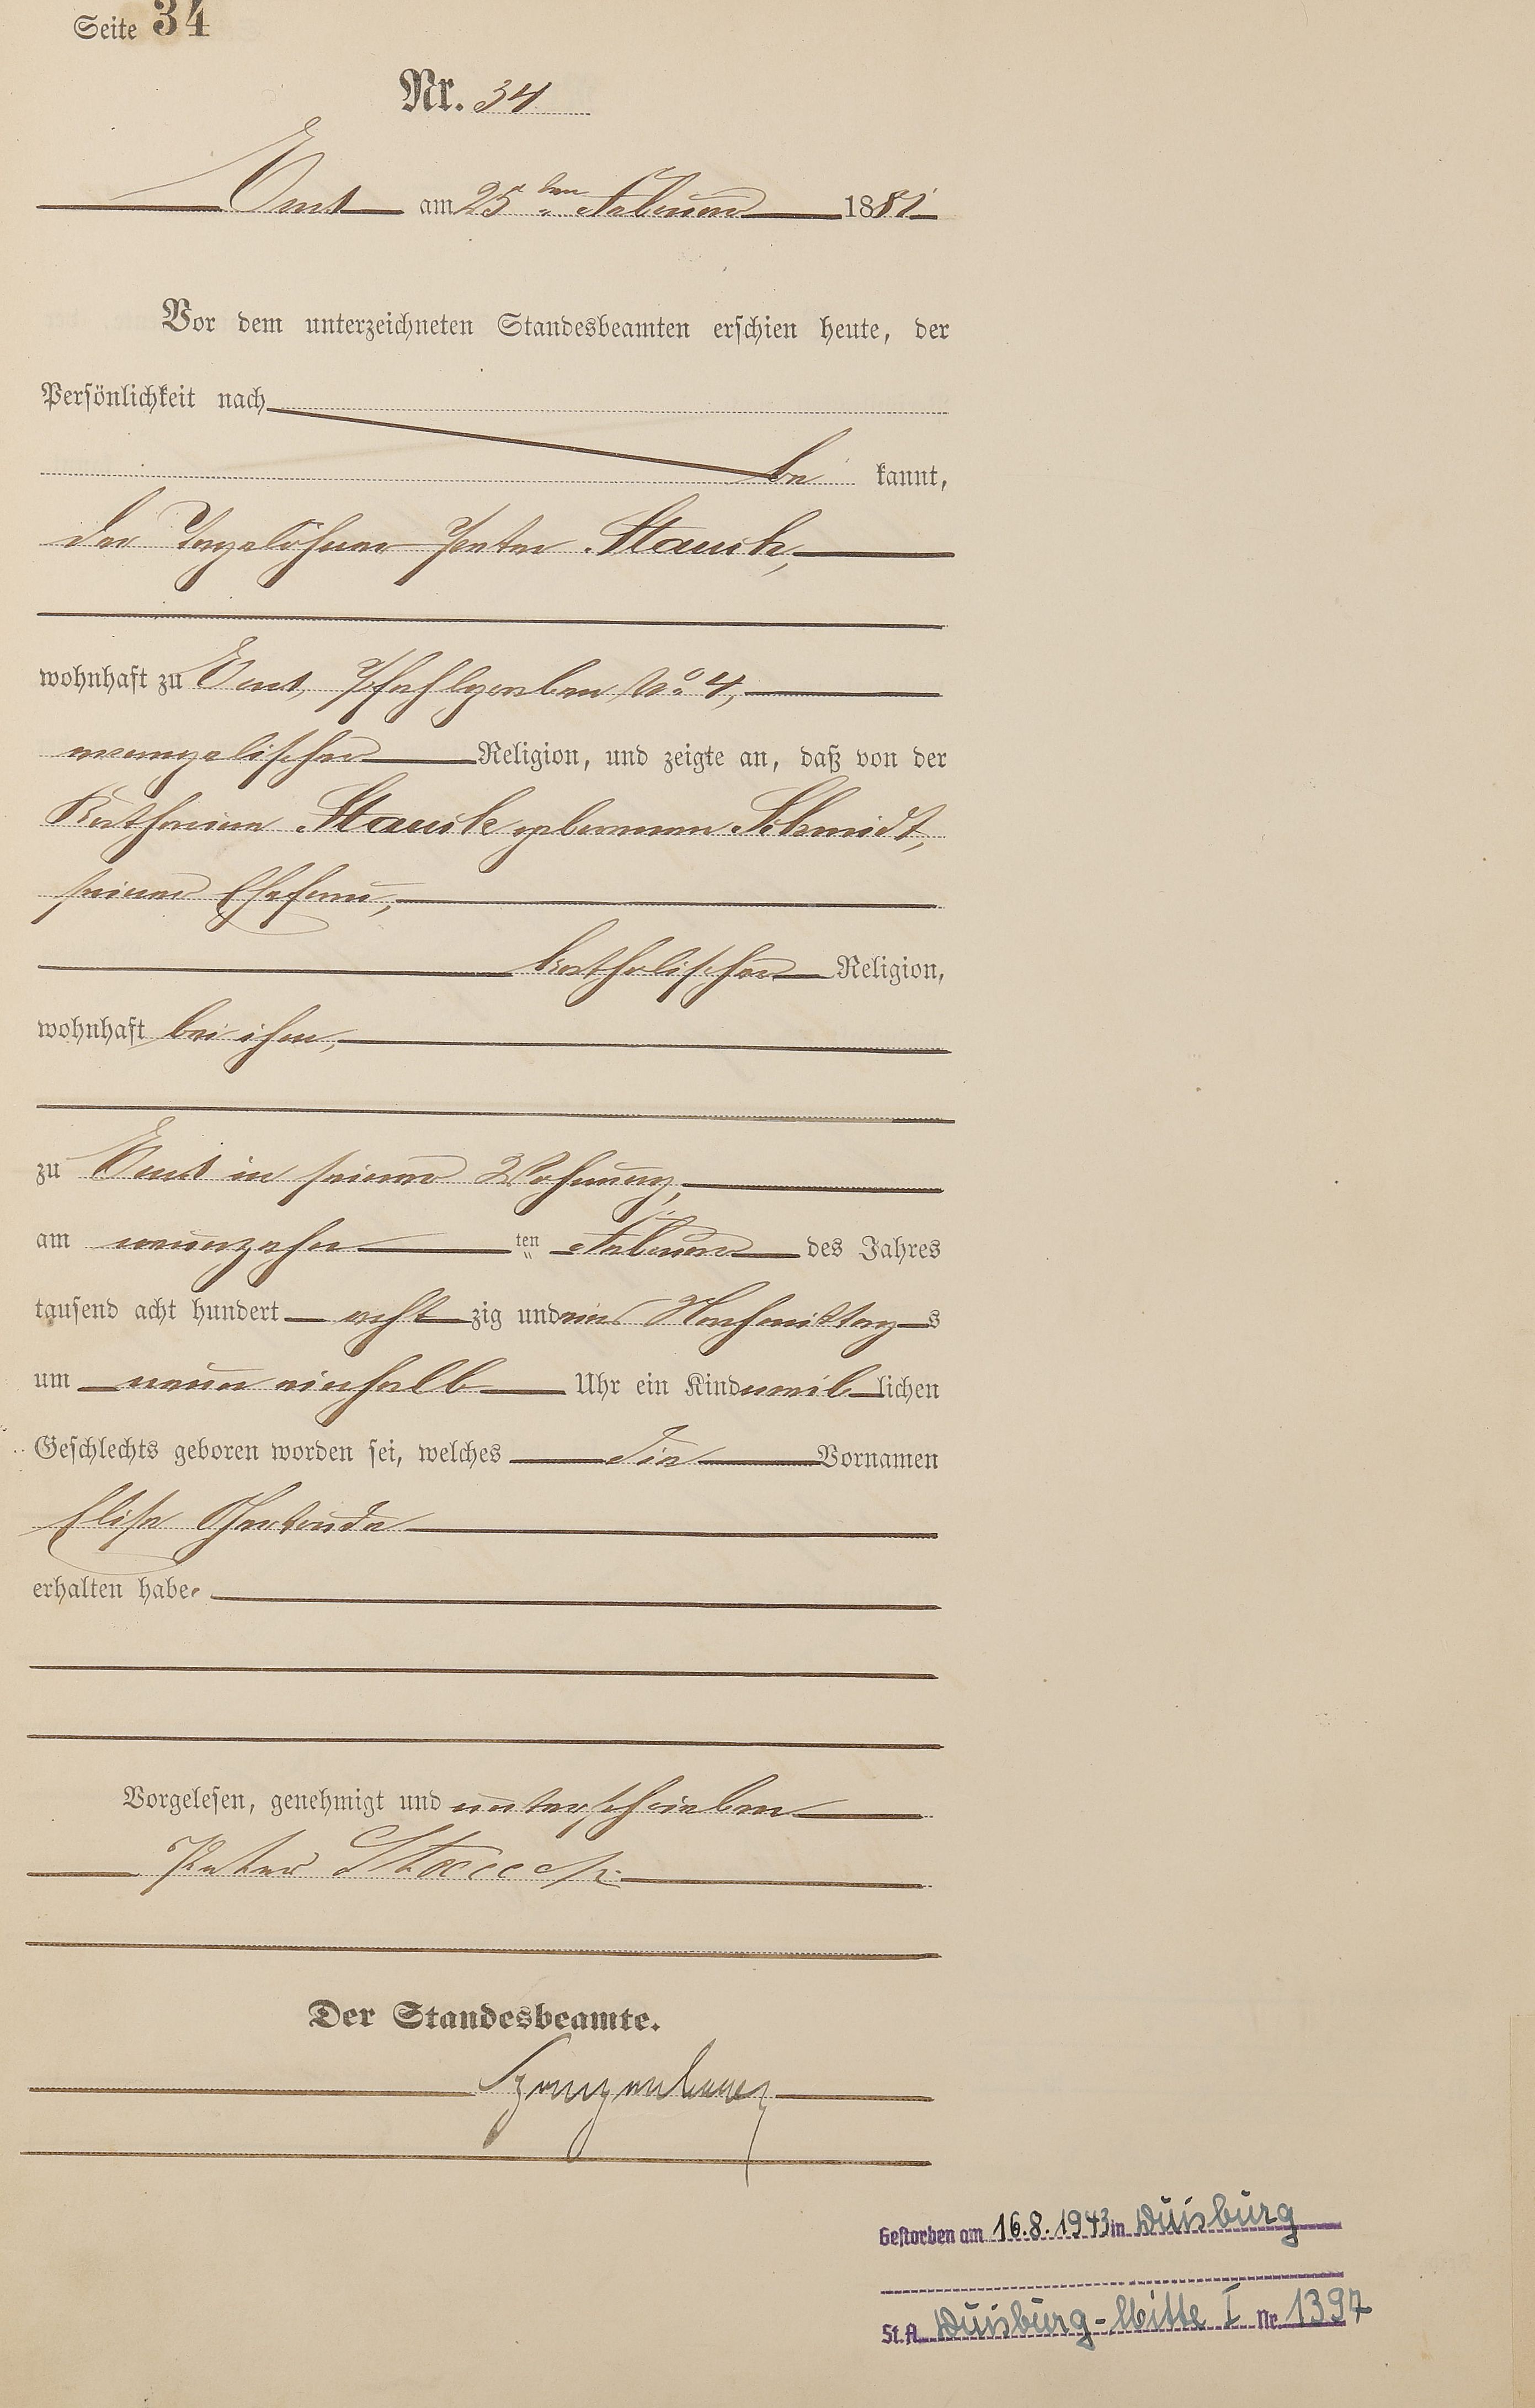 Seite 34
Nr. 34
Ems am 25ten Februar 1881
Vor dem unterzeichneten Standesbeamten erschien heute, der
Persönlichkeit nach
be kannt,
der Tagelöhner Peter Stauch,
wohnhaft zu Ems, Pfahlgraben No. 4,
evangelischer Religion, und zeigte an, daß von der
Katharina Stauch geborenen Schmidt,
seiner Ehefrau,
katholischer Religion,
wohnhaft bei ihm,
zu Ems in seiner Wohnung,
am neunzehn ten Februar des Jahres
tausend acht hundert acht zig und eins Nachmittag s
um neun einhalb Uhr ein Kind weib lichen
Geschlechts geboren worden sei, welches die Vornamen
Elise Gertrude
erhalten habe.
Vorgelesen, genehmigt und unterschrieben
Peter Stauch
Der Standesbeamte.
Gestorben am 16.8.1943 in Duisburg
St.A. Duisburg-Mitte I Nr. 1397